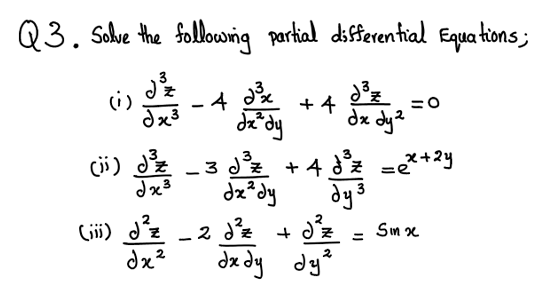 Q3. Solve the following partial differential Equations;
(i) ∂³z/∂x³ - 4 ∂³x/∂x²∂y + 4 ∂³z/∂x∂y² = 0
(ii) ∂³z/∂x³ - 3 ∂³z/∂x²∂y + 4 ∂³z/∂y³ = e^(x+2y)
(iii) ∂²z/∂x² - 2 ∂²z/∂x∂y + ∂²z/∂y² = Sin x